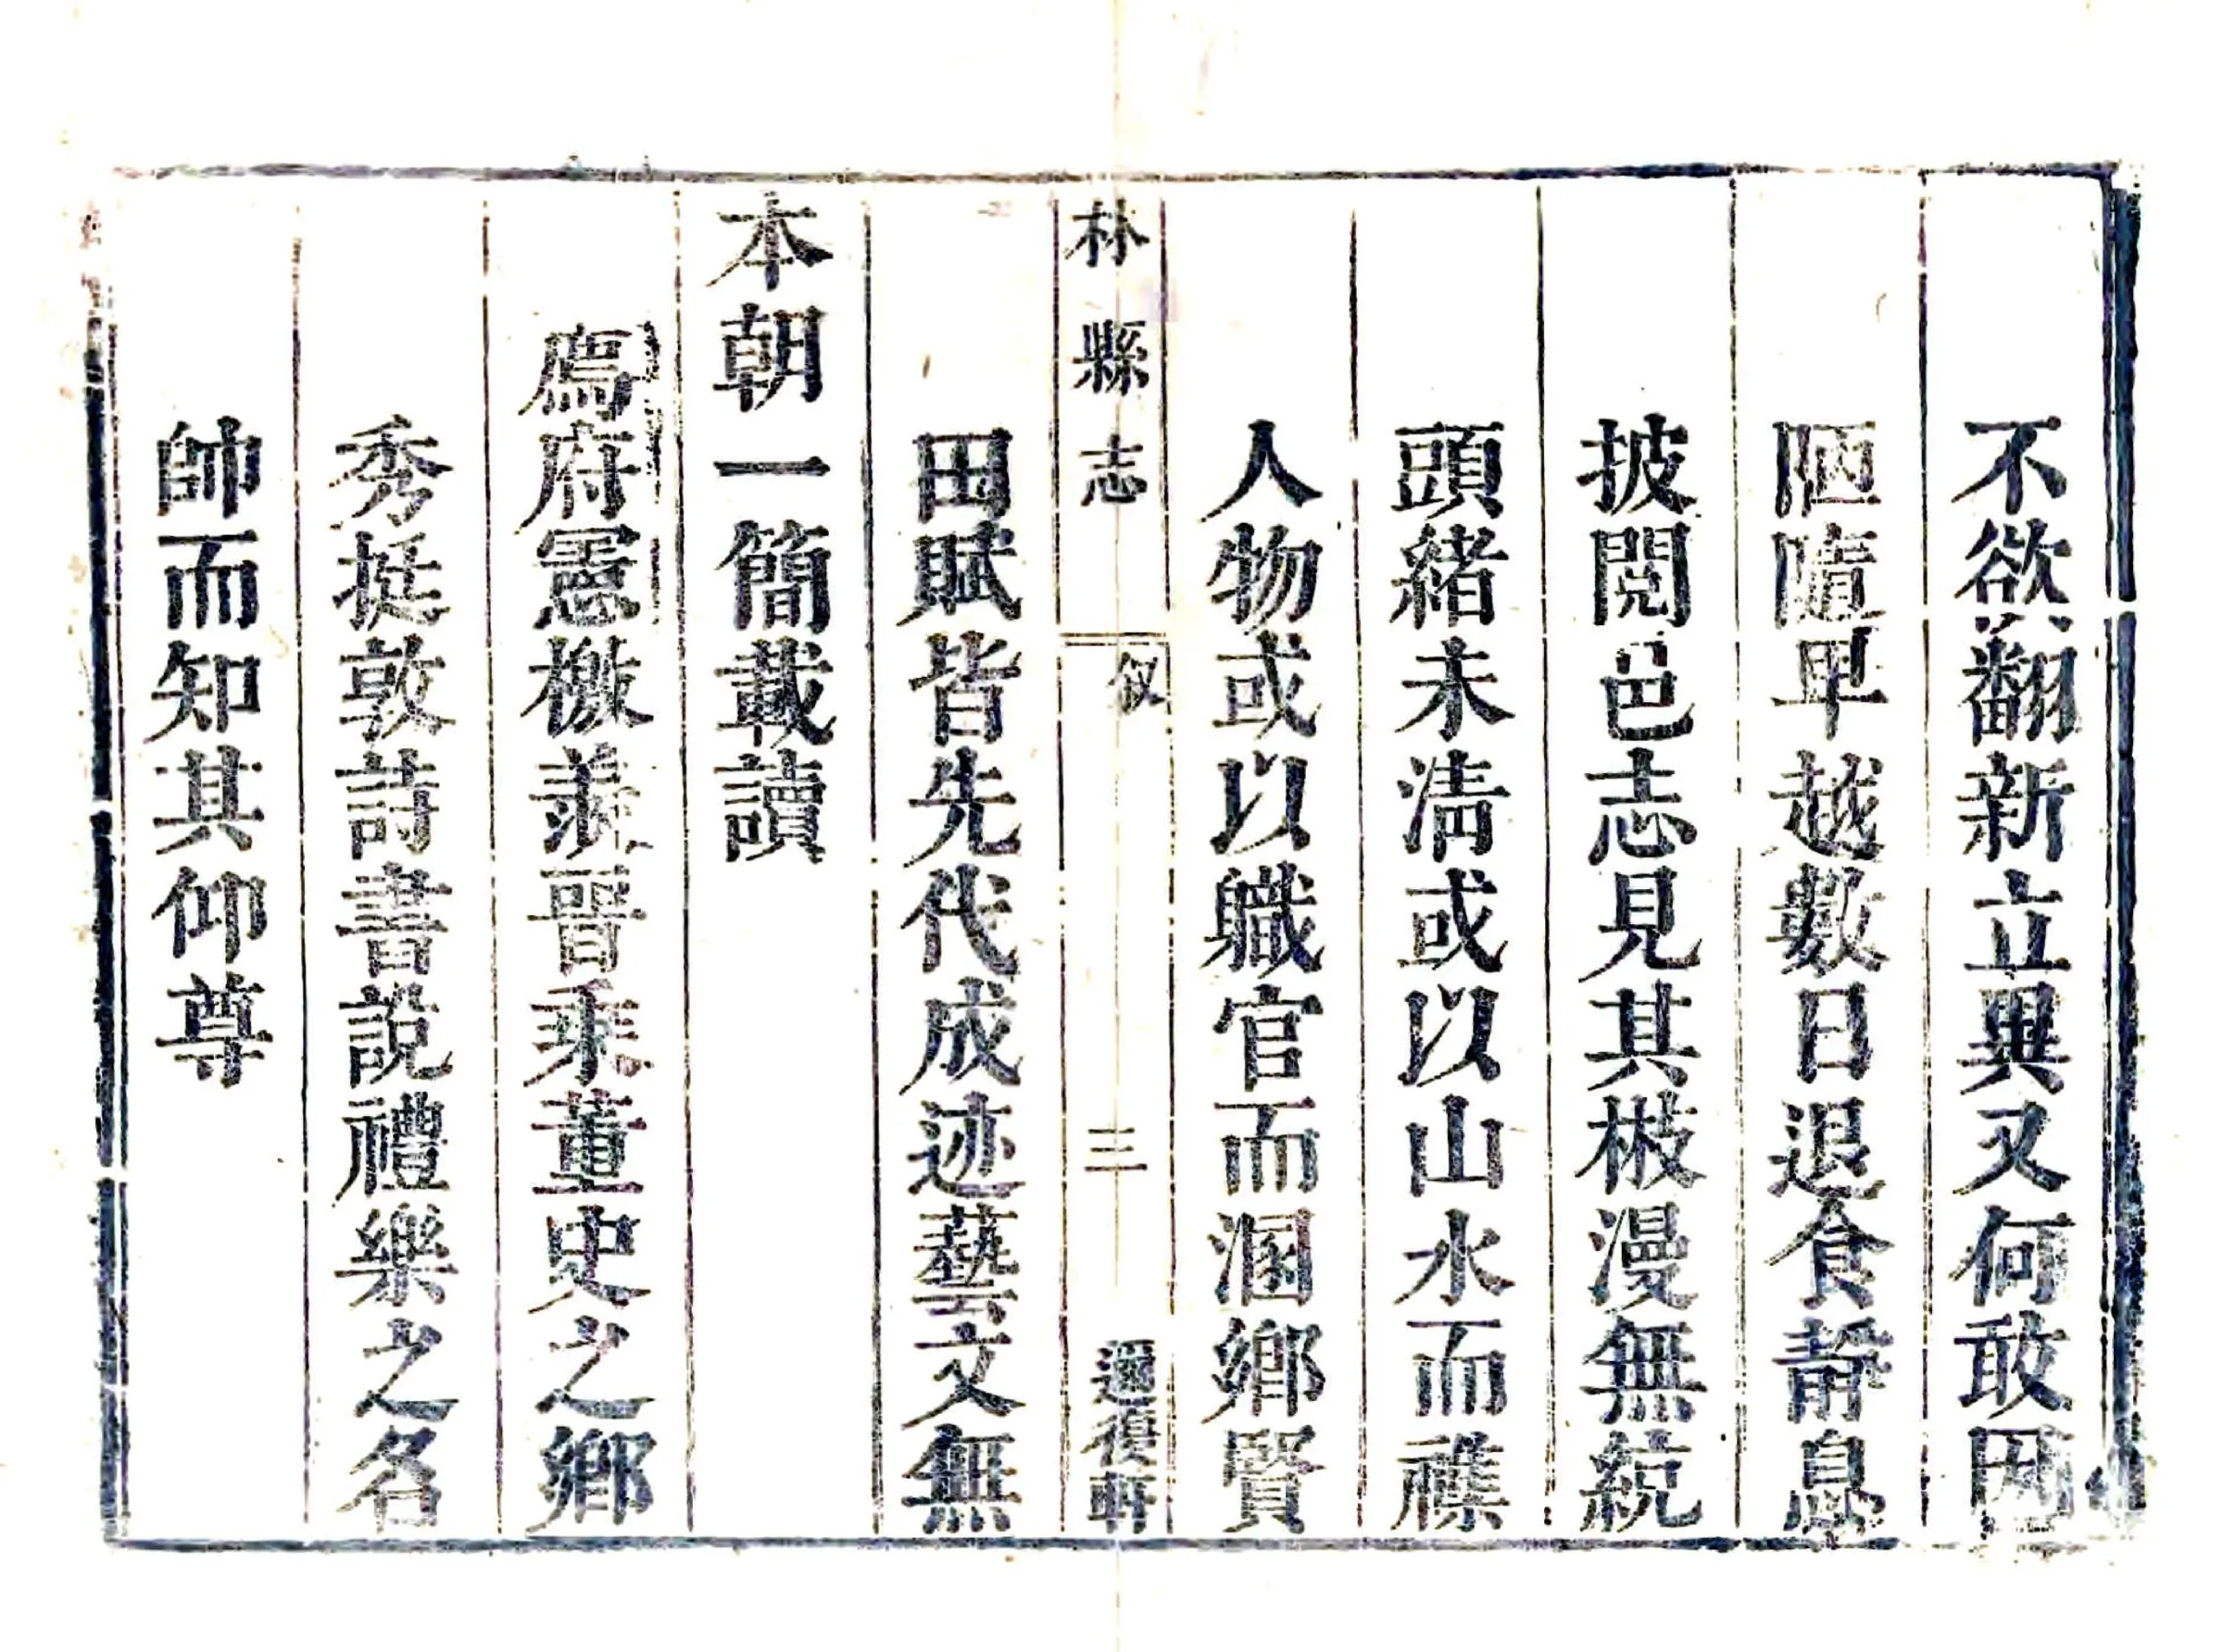 不欲翻新立異又何敢因
陋隨卑越數日退食靜息
披閱邑志見其枝漫無統
頭緒未淸或以山水而襍
人物或以職官而溷鄉賢
林縣志 叙 三 邇復軒
田賦皆先代成迹藝文無
本朝一簡載讀
府憲檄羨晉乘董史之鄉
秀挺敦詩書說禮樂之名
帥而知其仰尊